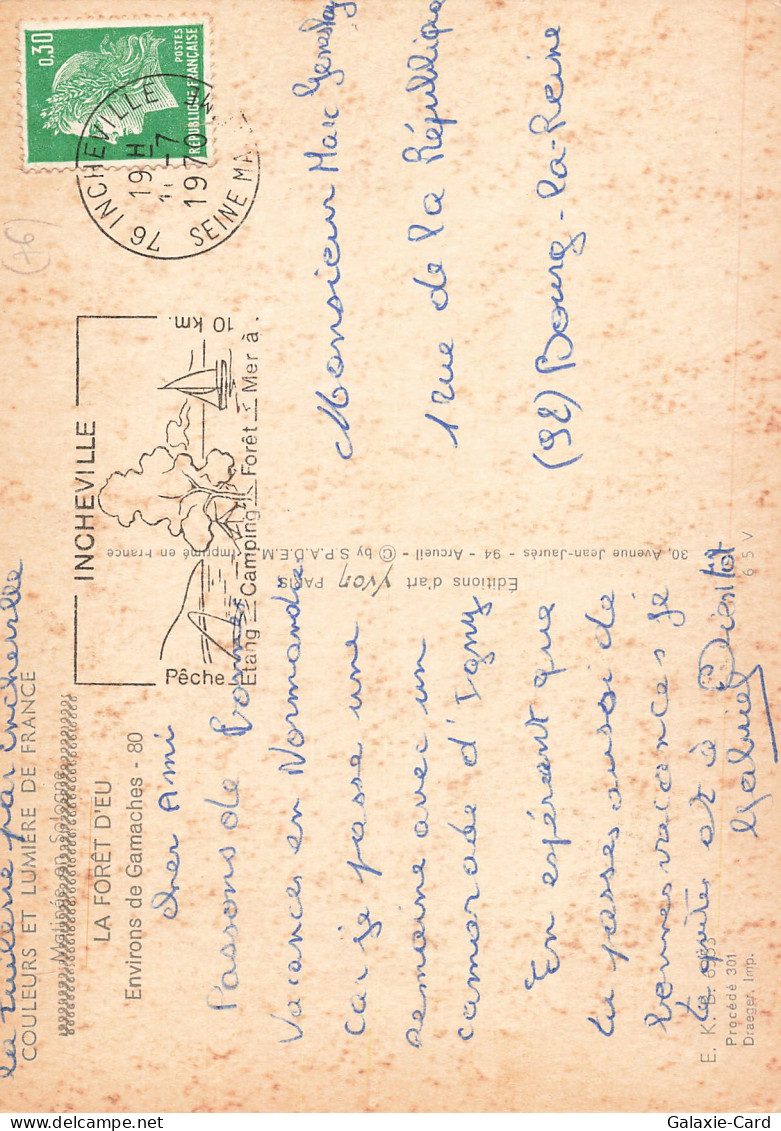 La Tuilerie par incheville
COULEURS ET LUMIÈRE DE FRANCE
Matinée en Sologne
LA FORÊT D'EU
Environs de Gamaches - 80
cher Ami
Passons de Bonnes
Vacances en Normandie
Car je passe une
semaine avec un
camarade d'Igny
En espérant que
tu passes aussi de
bonnes vacances je
te quitte et à Bientôt
Gabriel
E. K. B.
Procédé 301
Draeger, Imp.
6 5 V
Éditions d'art Yvon PARIS
30, Avenue Jean-Jaurès - 94 - Arcueil - © by S.P.A.D.E.M. Imprimé en France
INCHEVILLE
10 km.
Pêche
Étang Camping Forêt Mer à.
0,30
POSTES
RÉPUBLIQUE FRANÇAISE
76 INCHEVILLE
19 H
-7
1970
SEINE MME
(76)
Monsieur Marc
1 rue de la République
(92) Bourg-la-Reine
Galaxie-Card